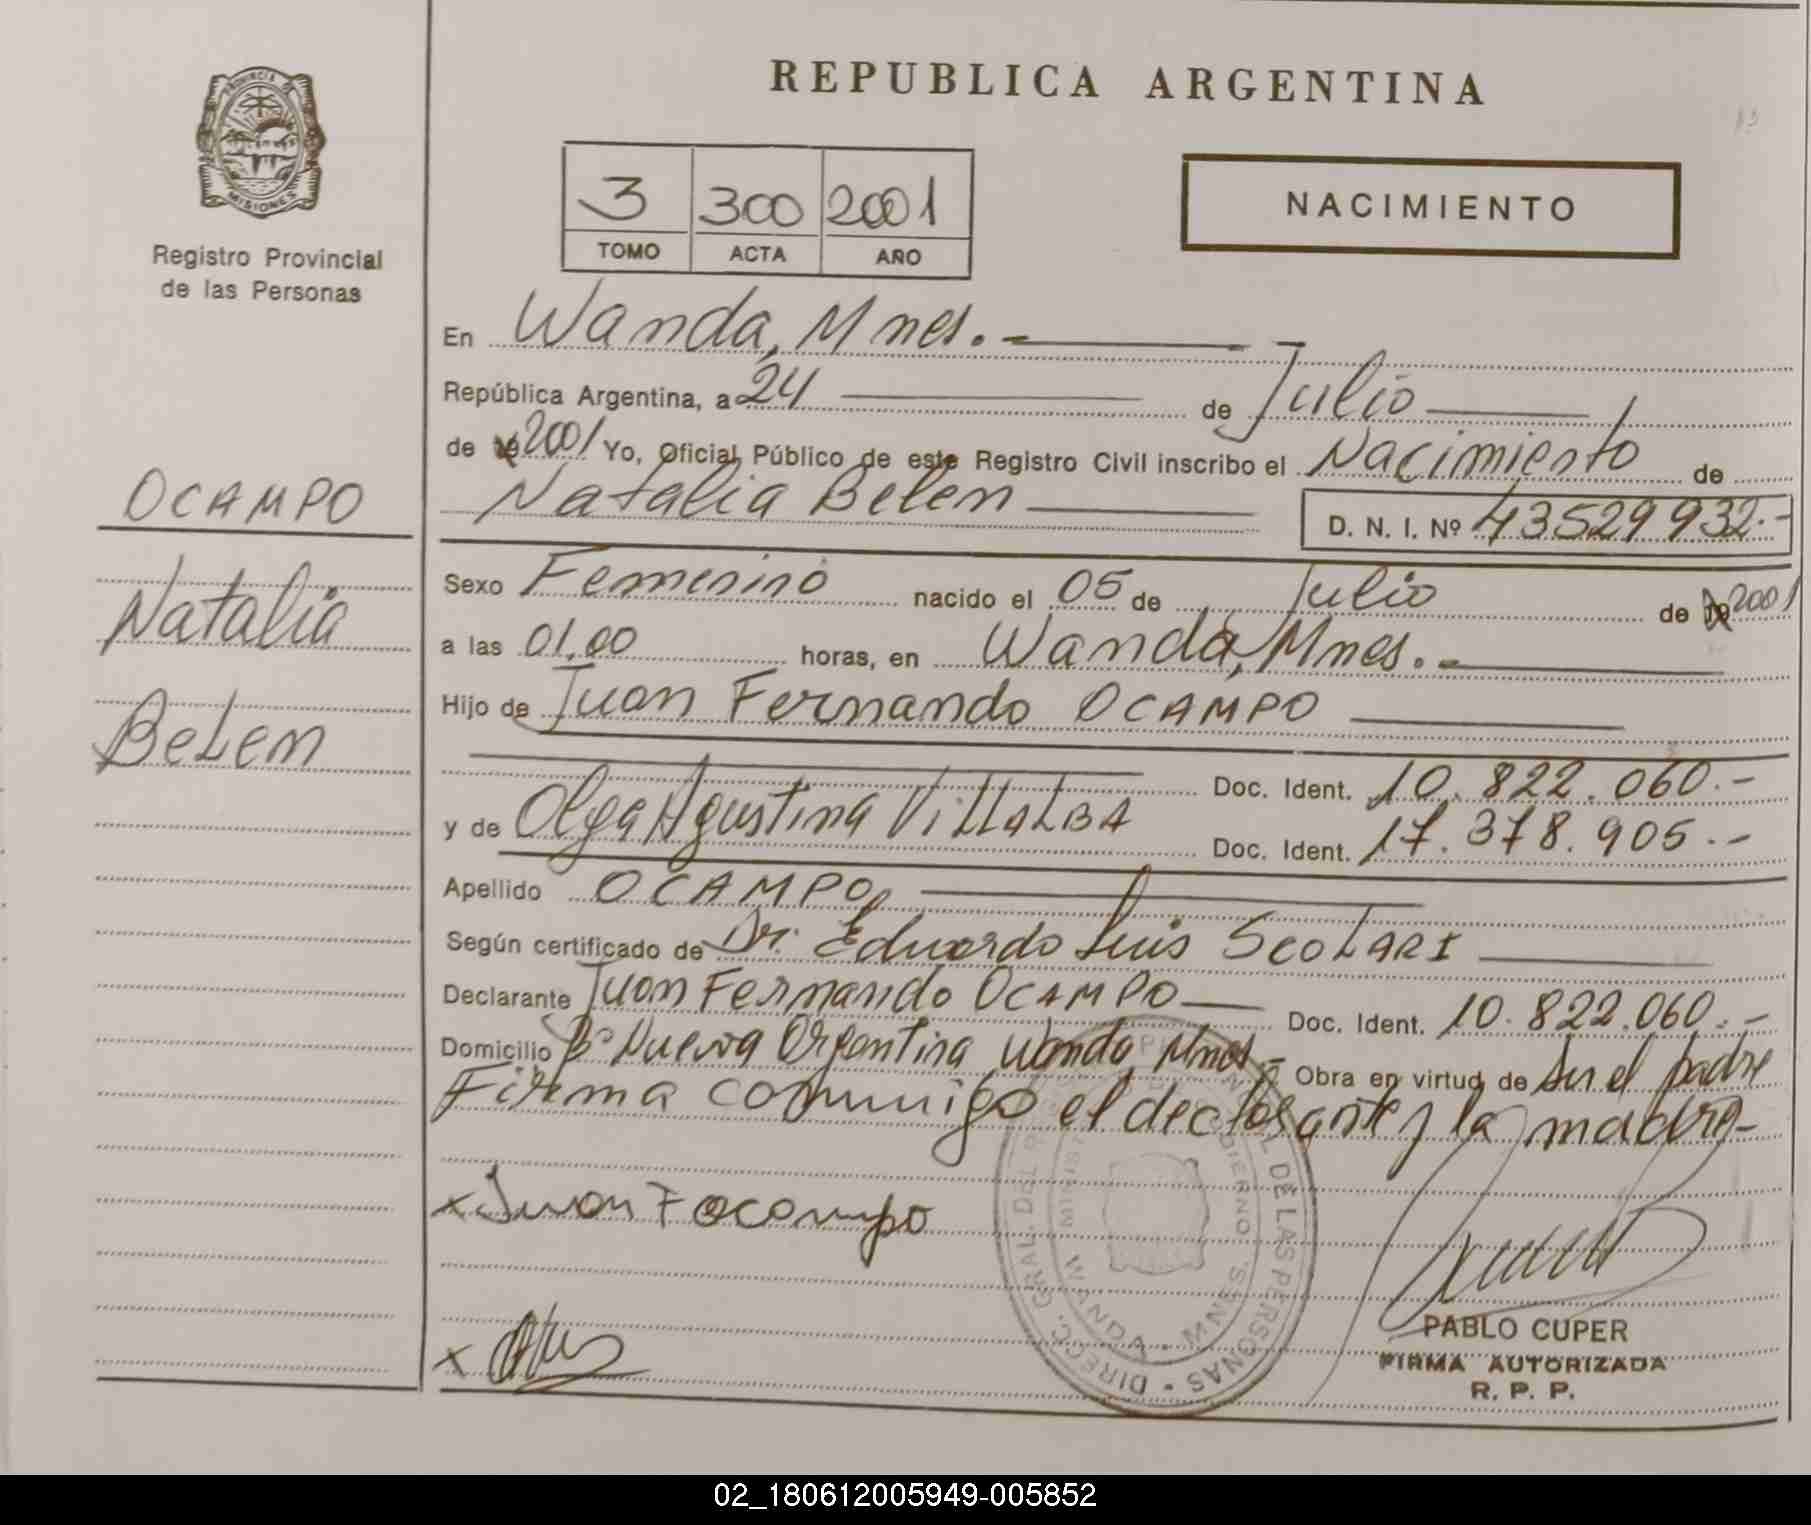 PROVINCIA DE
MISIONES
Registro Provincial
de las Personas
OCAMPO
Natalia
Belen
REPUBLICA ARGENTINA
3 300 2001
TOMO ACTA AÑO
NACIMIENTO
En Wanda, Mnes.-
República Argentina, a 24 de Julio
de 19 2001 Yo, Oficial Público de este Registro Civil inscribo el Nacimiento de
Natalia Belen D. N. I. Nº 43529932.-
Sexo Femenino nacido el 05 de Julio de 19 2001
a las 01,00 horas, en Wanda, Mnes.-
Hijo de Juan Fernando OCAMPO
Doc. Ident. 10.822.060.-
y de Olga Agustina VILLALBA Doc. Ident. 17.378.905.-
Apellido OCAMPO
Según certificado de Dr. Eduardo Luis SCOLARI
Declarante Juan Fernando OCAMPO Doc. Ident. 10.822.060.-
Domicilio Bº Nueva Argentina Wanda, Mnes.- Obra en virtud de Ser el padre
Firma conmigo el declarante y la madre-
x Juan F Ocampo
x
DIRECC. GRAL. DEL DE LAS PERSONAS
WANDA - MNES.
PABLO CUPER
FIRMA AUTORIZADA
R. P. P.
02_180612005949-005852